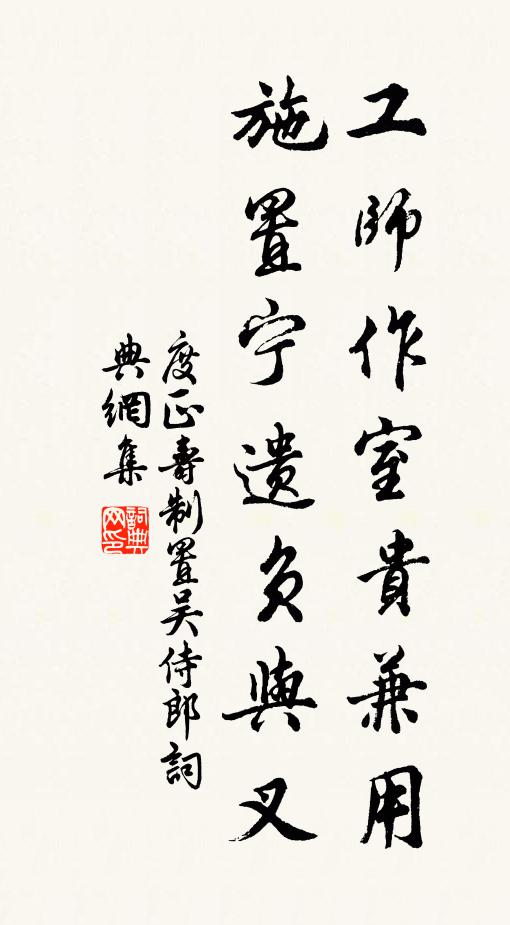 工師作室貴兼用
施置宁遗負與叉
度正壽制置吴侍郎詞
典網集
詞典網印